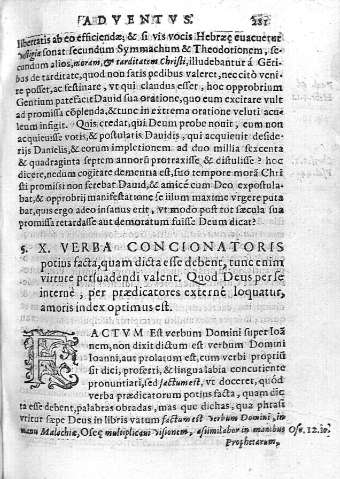 ADVENTVS. 281
libertatis ab eo efficiendæ; & si vis vocis Hebreę euacuetur
vestigia sonat secundum Symmachum & Theodotionem, se-
cundom alios, moram, et tarditatem Christi, illudebantur á Gēti-
bus de tarditate, quod non satis pedibus valeret, nec citò veni-
re posset, ac festinare, vt qui claudus esset; hoc opprobrium
Gentium patefacit Dauid sua oratione, quo eum excitare vult
ad promissa cōplenda, & tunc in extrema oratione veluti acu-
leum infigit. Quis credat, qui Deum probe nouit, eum non
acquieuisse votis, & postulatis Dauidis, qui acquieuit deside-
rijs Danielis, & eorum impletionem ad duo millia sexcenta
& quadraginta septem annorū protraxisse, & distulisse? hoc
dicere, nedum cogitare dementia est, si uo tempore morā Chri
sti promissi non ferebat Dauid, & amicè cum Deo expostula-
bat, & opprobrij manifestatione se illum maxime vrgere puta-
bat, quis ergo adeo insanus erit, vt modo post tot sæcula sua
promissa retardasse aut demoratum fuisse Deum dicat?
5. X. VERBA CONCIONATORIS
potius facta, quam dicta esse debent, tunc enim
virtute persuadendi valent. Quod Deus per se
internè, per prædicatores externè loquatur,
amoris index optimus est.
FACTVM Est verbum Domini super Ioā
nem, non dixit dictum est verbum Domini
Ioanni, aut prolatum est, cum verbi propriū
sit dici, proferri, & lingua labia concutiente
pronuntiari, sed factum est, vt doceret, quòd
verba prædicatorum potius facta, quam dic
ta esse debent, palabras obradas, mas que dichas, qua phrasi
vtitur sæpe Deus in libris vatum factum est verbum Domini, in
manu Malachiæ, Oseę multiplicaui visionem, assimilabor in manibus Ose. 12.
Prophetarum,